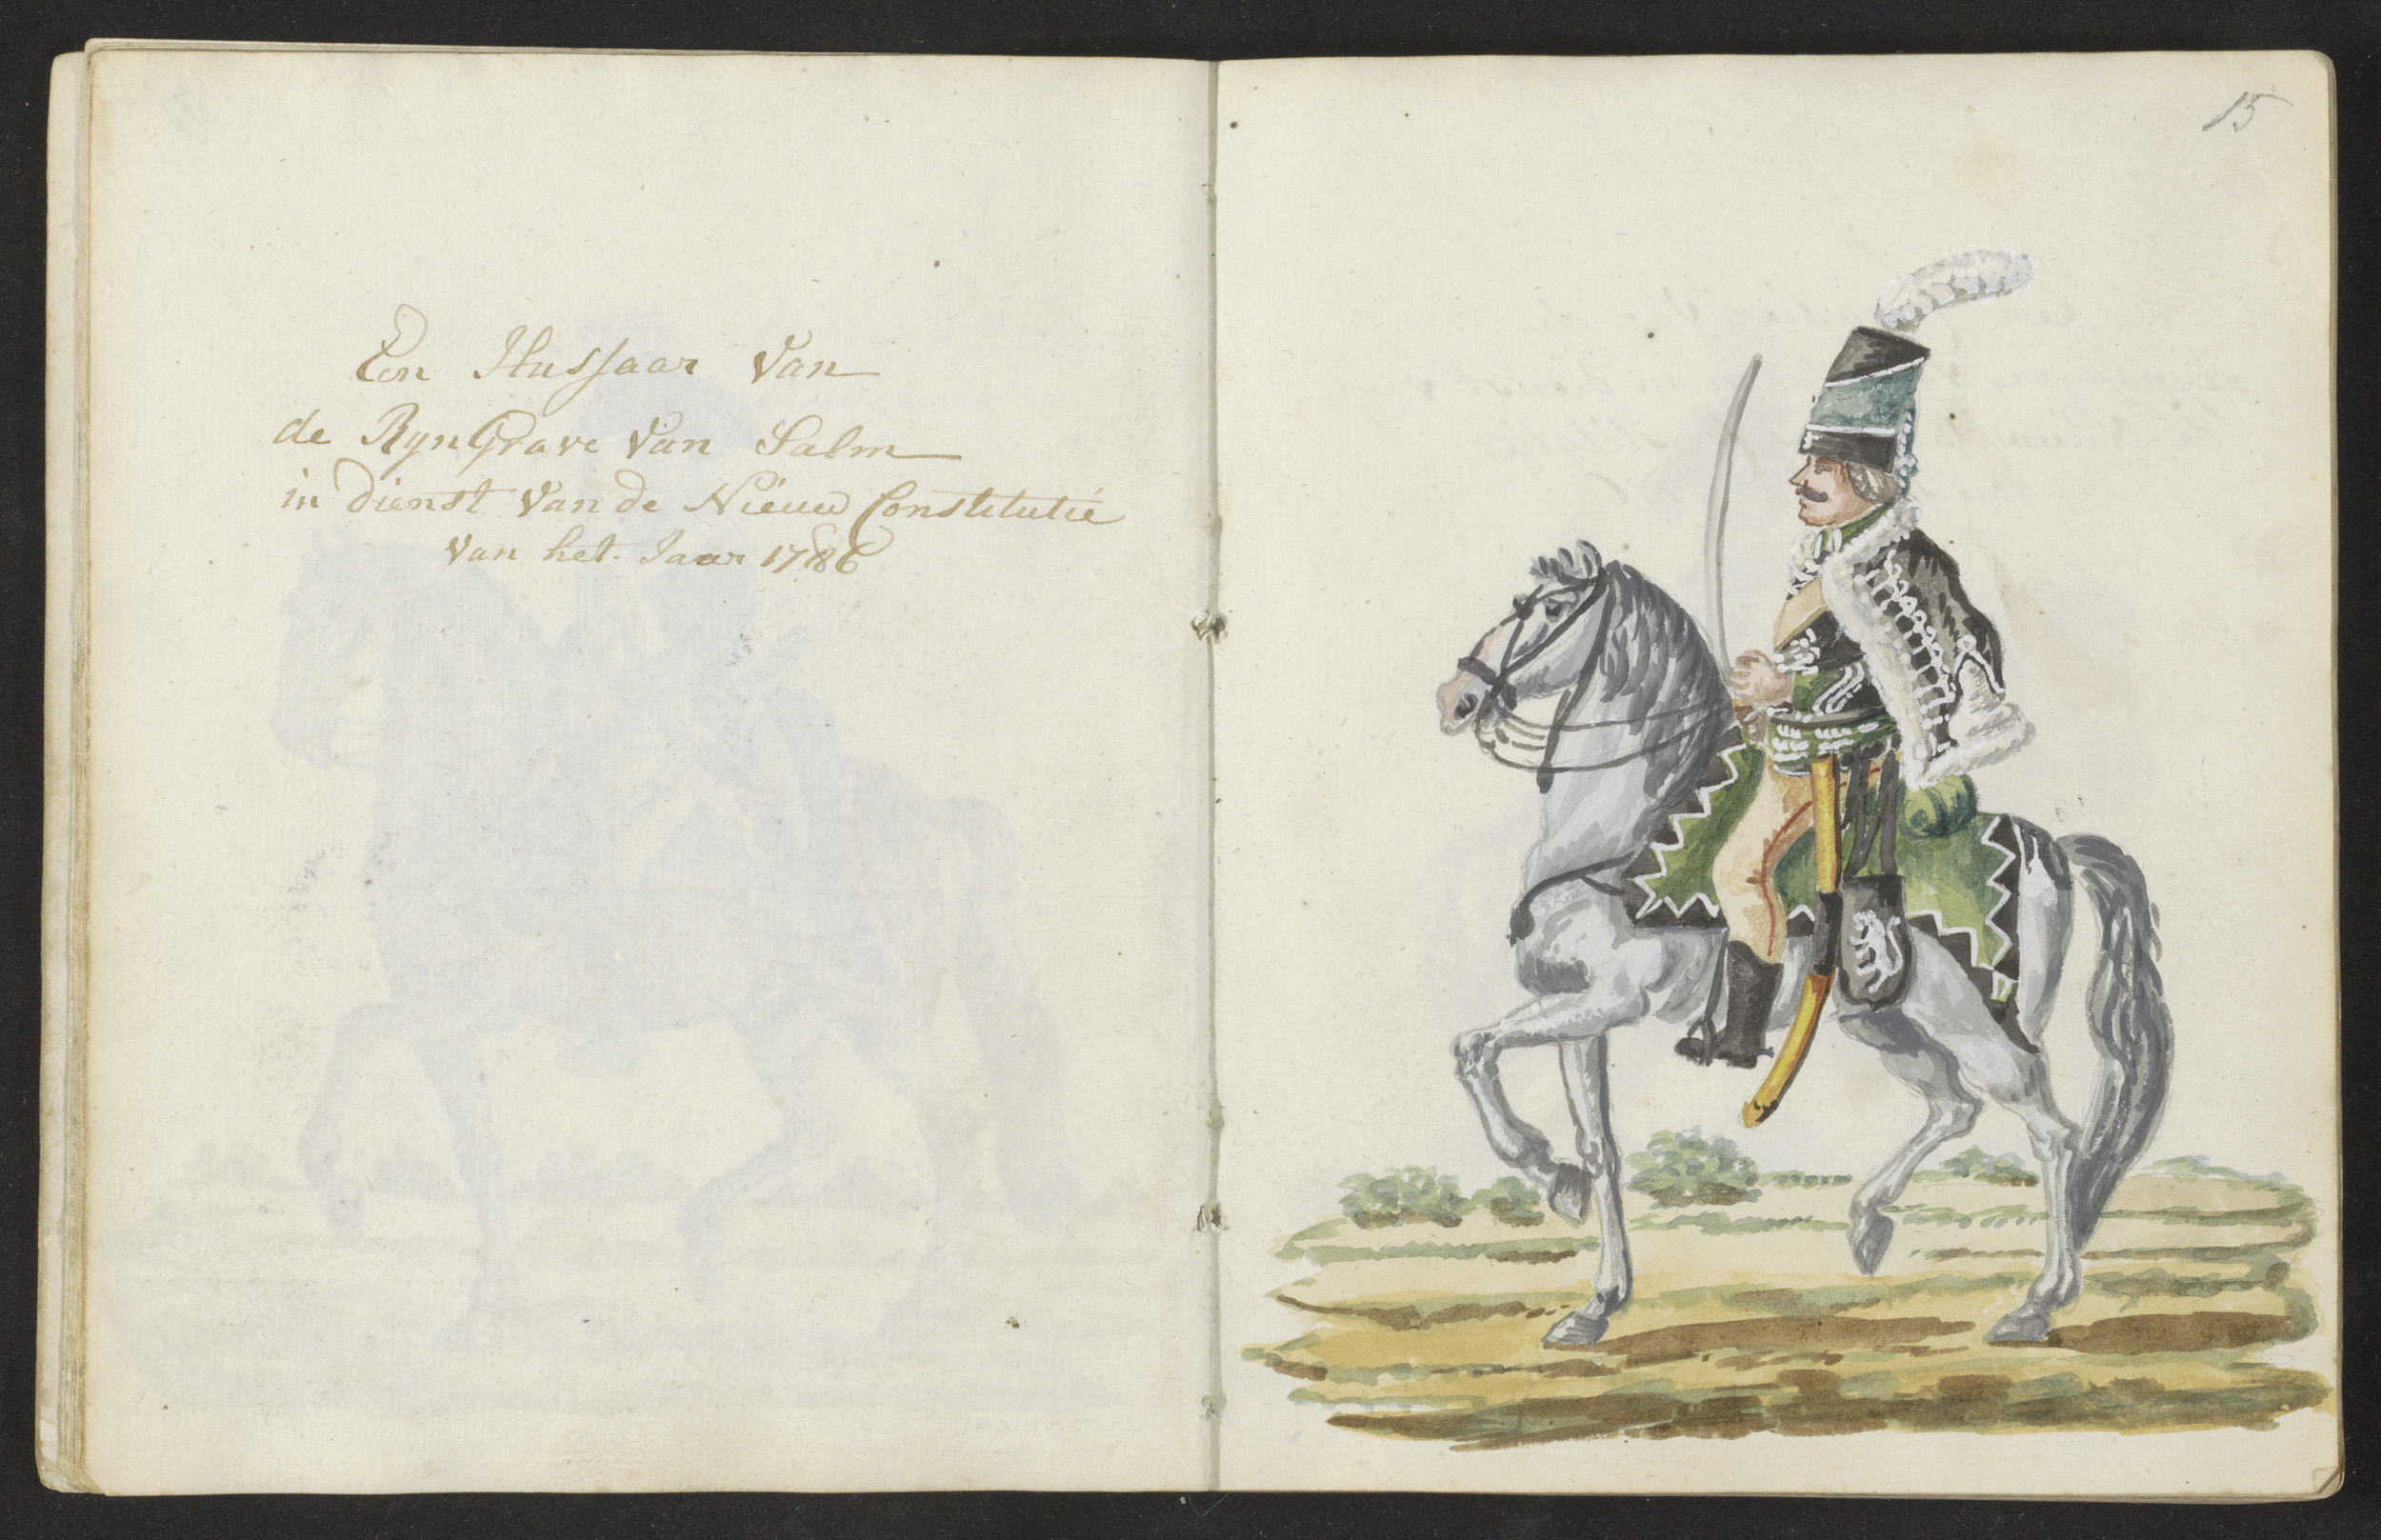 Een Hussaar Van
de RynGrave Van Salm
in Dienst Van de Nieuw Constitutie
Van het Jaar 1786
15